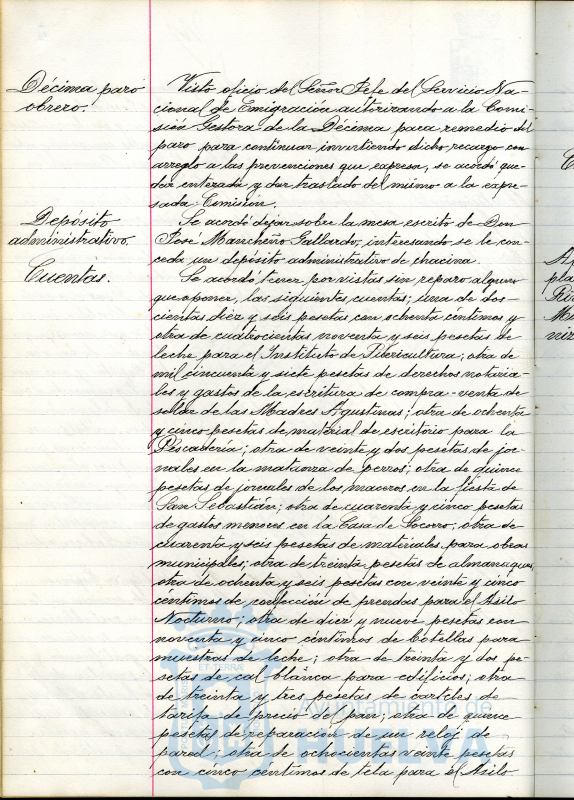 Décima paro
obrero.
Visto oficio del Señor Jefe del Servicio Na-
cional de Emigración autorizando a la Comi-
sión Gestora de la Décima para remedio del
paro para continuar invirtiendo dicho recargo con
arreglo a las prevenciones que expresa, se acordó que-
dar enterada y dar traslado del mismo a la expre-
sada Comisión.
Depósito
administrativo.
Se acordó dejar sobre la mesa escrito de Don
José Mancheño Gallardo, interesando se le con-
ceda un depósito administrativo de chacina.
Cuentas.
Se acordó tener por vistas sin reparo alguno
que oponer, las siguientes cuentas; una de dos-
cientas diez y seis pesetas con ochenta céntimos y
otra de cuatrocientas noventa y seis pesetas de
leche para el Instituto de Puericultura; otra de
mil cincuenta y siete pesetas de derechos notaria-
les y gastos de la escritura de compra-venta de
solar de las Madres Agustinas; otra de ochenta
y cinco pesetas de material de escritorio para la
Pescadería; otra de veinte y dos pesetas de jor-
nales en la matanza de perros; otra de quince
pesetas de jornales de los maceros en la fiesta de
San Sebastián; otra de cuarenta y cinco pesetas
de gastos menores en la Casa de Socorro; otra de
cuarenta y seis pesetas de materiales para obras
municipales; otra de treinta pesetas de almanaques,
otra de ochenta y seis pesetas con veinte y cinco
céntimos de confección de prendas para el Asilo
Nocturno; otra de diez y nueve pesetas con
noventa y cinco céntimos de botellas para
muestras de leche; otra de treinta y dos pe-
setas de cal blanca para edificios; otra
de treinta y tres pesetas de carteles de
tarifa de precio del pan; otra de quince
pesetas de reparación de un reloj de
pared; otra de ochocientas veinte pesetas
con cinco céntimos de tela para el Asilo
ET TERRA
Ayuntamiento de